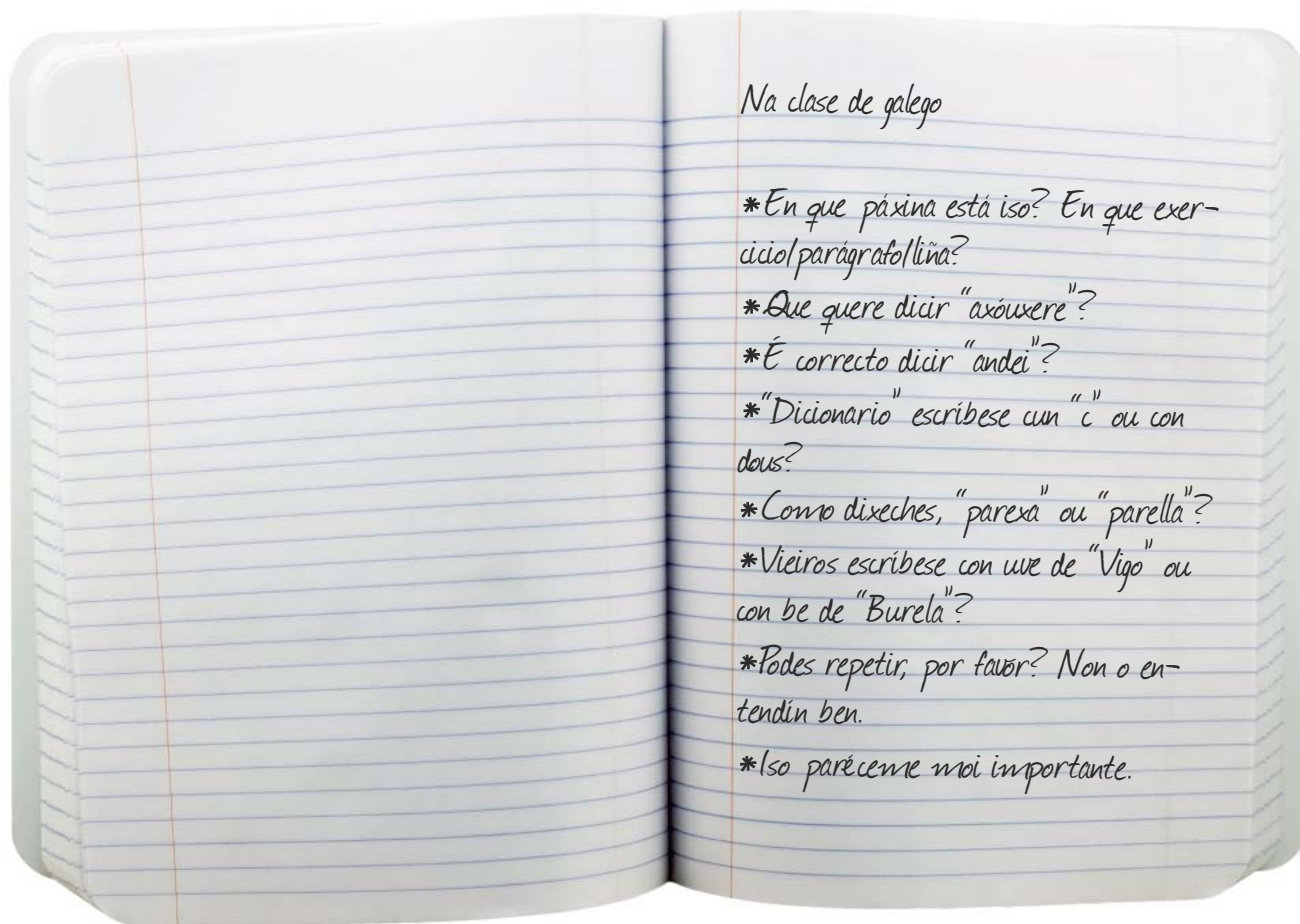 Na clase de galego
*En que páxina está iso? En que exer-
cicio/parágrafo/liña?
*Que quere dicir "axóuxere"?
*É correcto dicir "andei"?
*"Dicionario" escríbese cun "c" ou con
dous?
*Como dixeches, "parexa" ou "parella"?
*Vieiros escríbese con uve de "Vigo" ou
con be de "Burela"?
*Podes repetir, por favor? Non o en-
tendín ben.
*Iso paréceme moi importante.